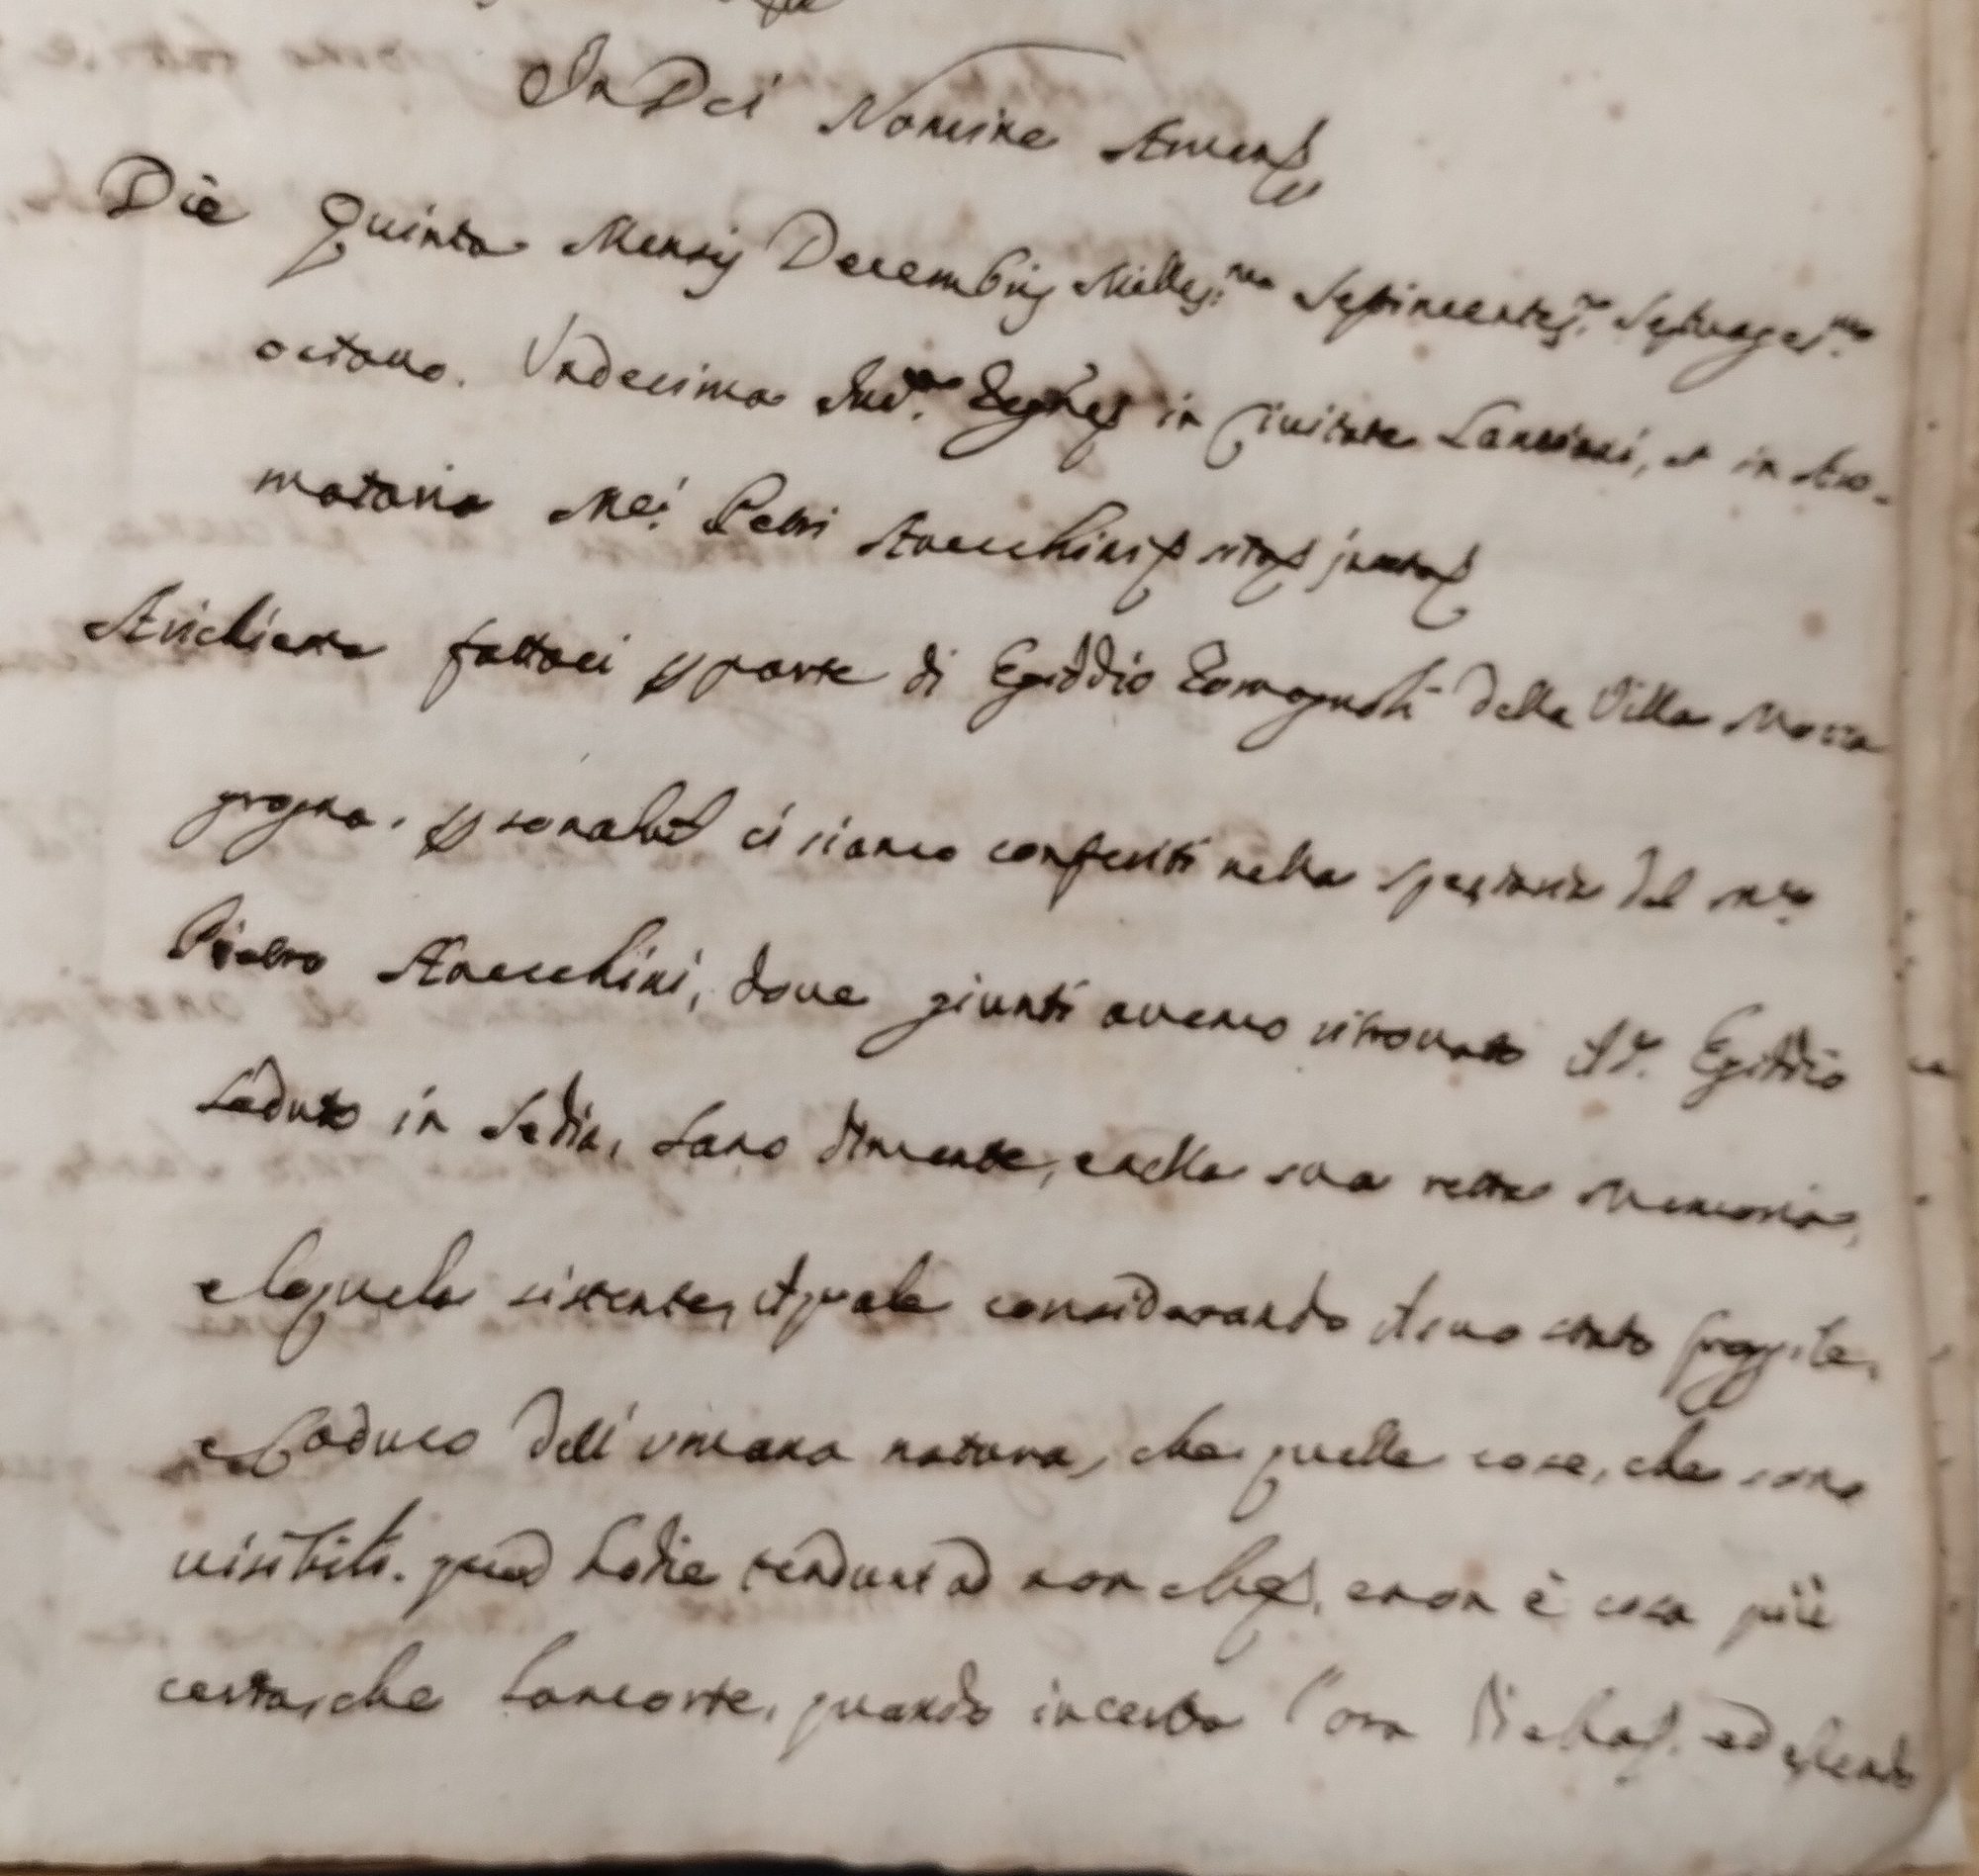 In Dei Nomine Amen
Die Quinta Mensis Decembris Milles.mo Septincentes.mo Septuages.mo
octavo. Undecima Ind.ne in Civitate Lanciani, et in Aro-
mataria Mei Petri Stoecchini sita juxta
A richiesta fattaci p parte di Egiddio Romagnoli della Villa Mozza
grogna. psonalmt ci siamo conferiti nella speziaria del
Pietro Stoecchini, dove giunti avemo ritrovato il d.o Egiddio
seduto in sedia, sano di mente, e nella sua retta memoria,
e loquela sistente, il quale considerando il suo stato fraggile,
e Caduco dell'umana natura, che quelle cose, che sono
visibili. quod hodie tendunt ad non e non è cosa più
certa, che la morte, quando incerta l'ora di essa. ed essendo